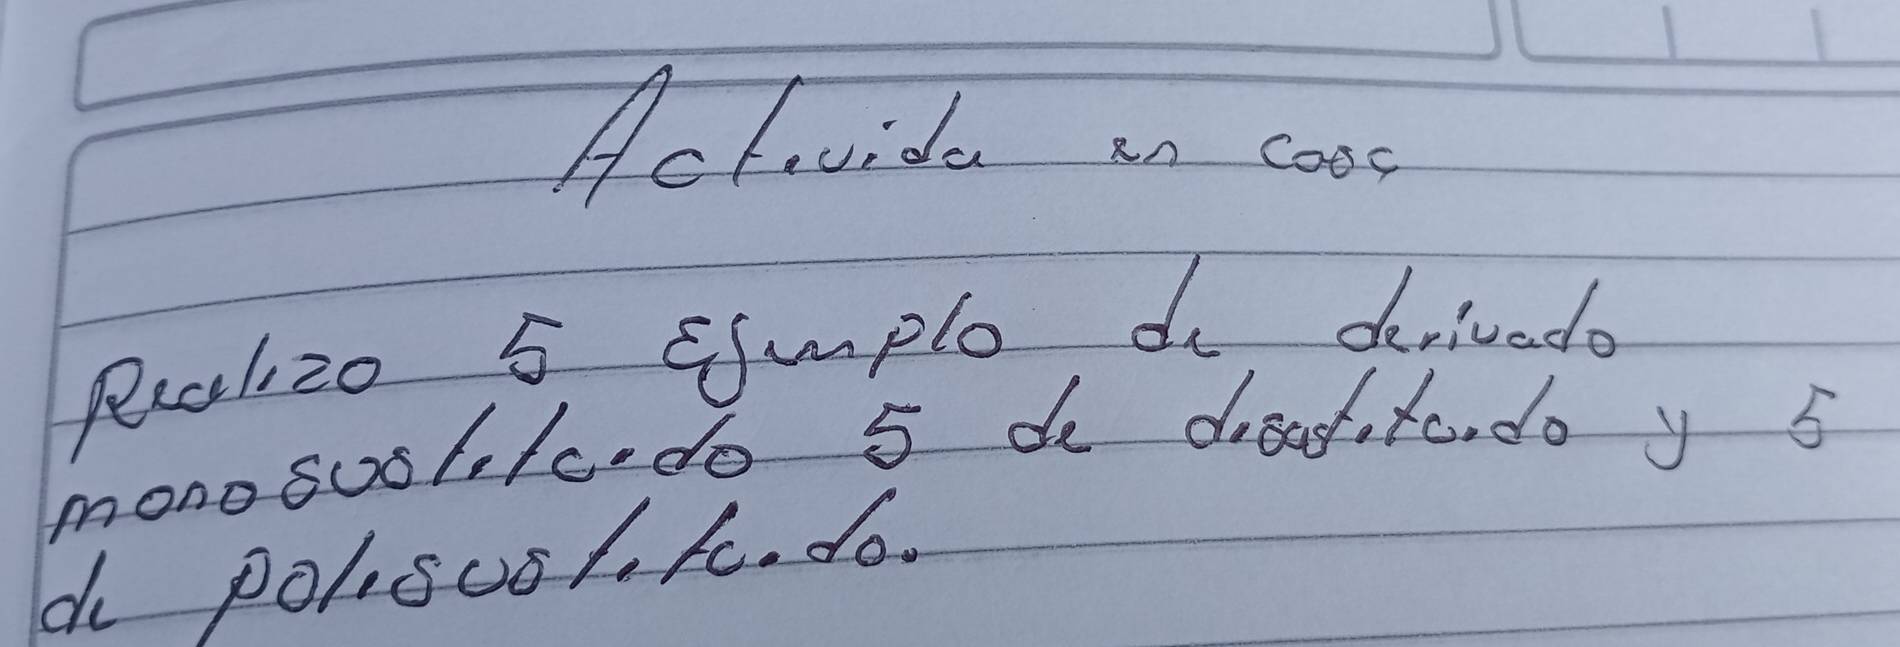 Actívida en casa
Realizo 5 Ejemplo de derivado
monosustituido 5 de disustituido y 5
de polisustituido.